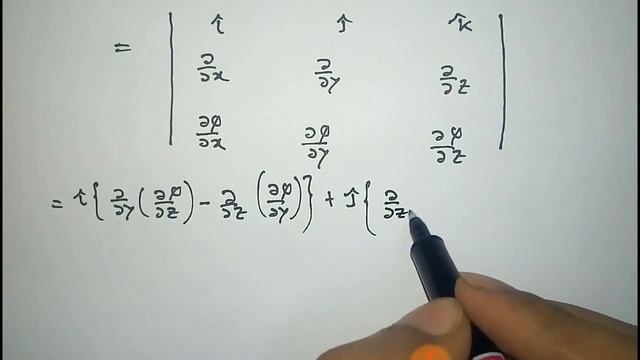 = | î ĵ k̂ |
| ∂/∂x ∂/∂y ∂/∂z |
| ∂φ/∂x ∂φ/∂y ∂φ/∂z |
= î { ∂/∂y (∂φ/∂z) − ∂/∂z (∂φ/∂y) } + ĵ { ∂/∂z